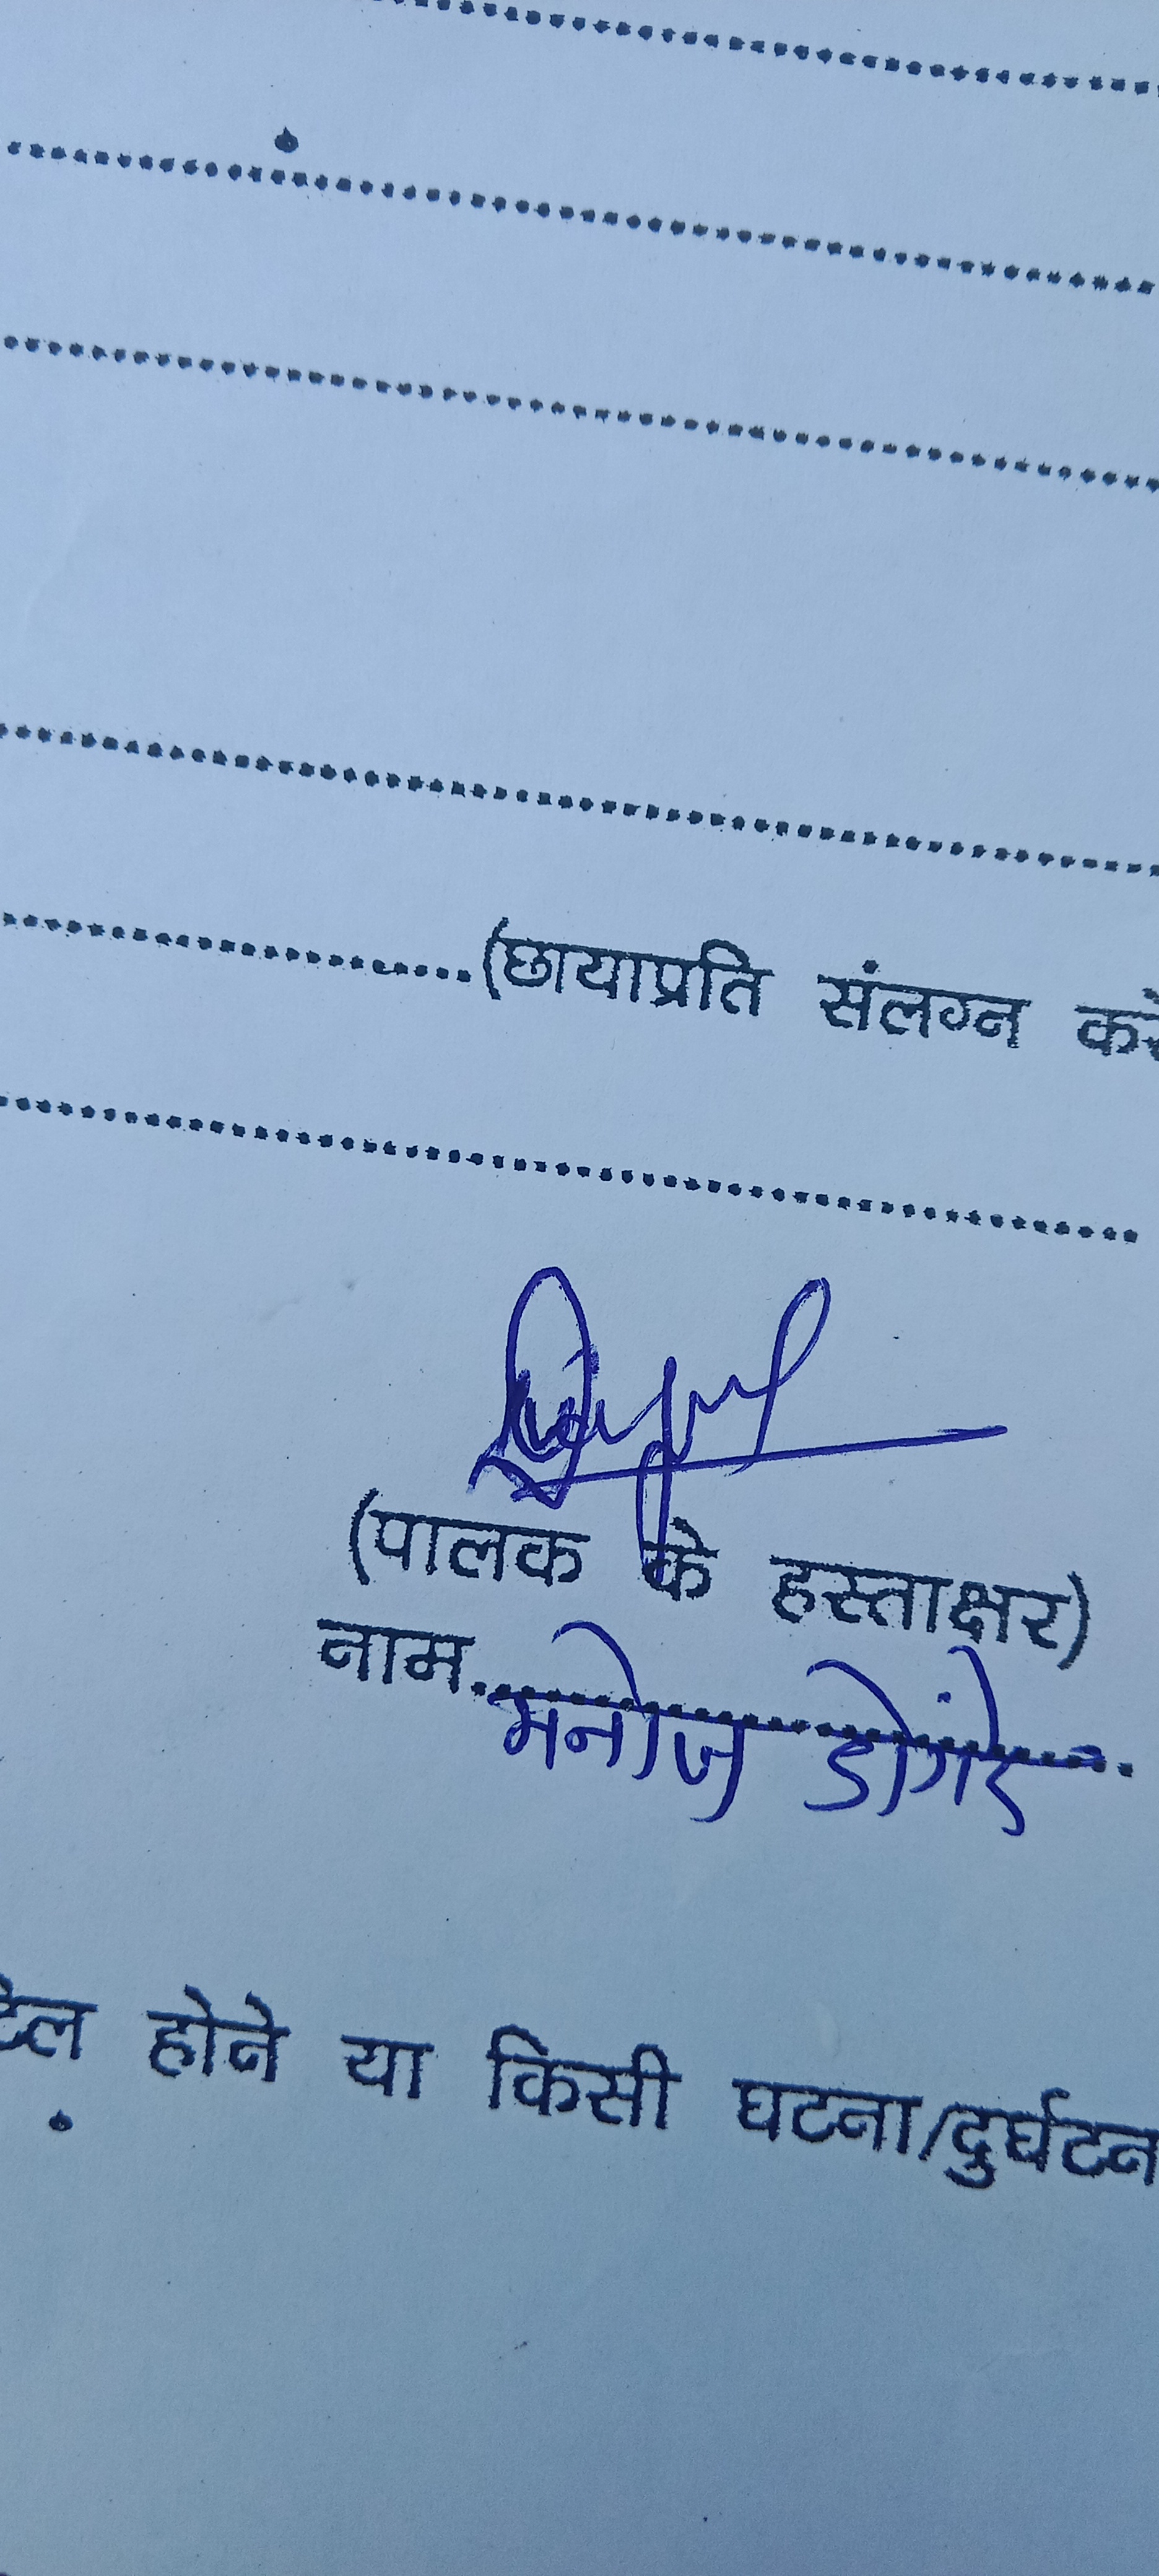 (छायाप्रति संलग्न करें
(पालक के हस्ताक्षर)
नाम....................
मनोज डोंगरे
होने या किसी घटना/दुर्घटन